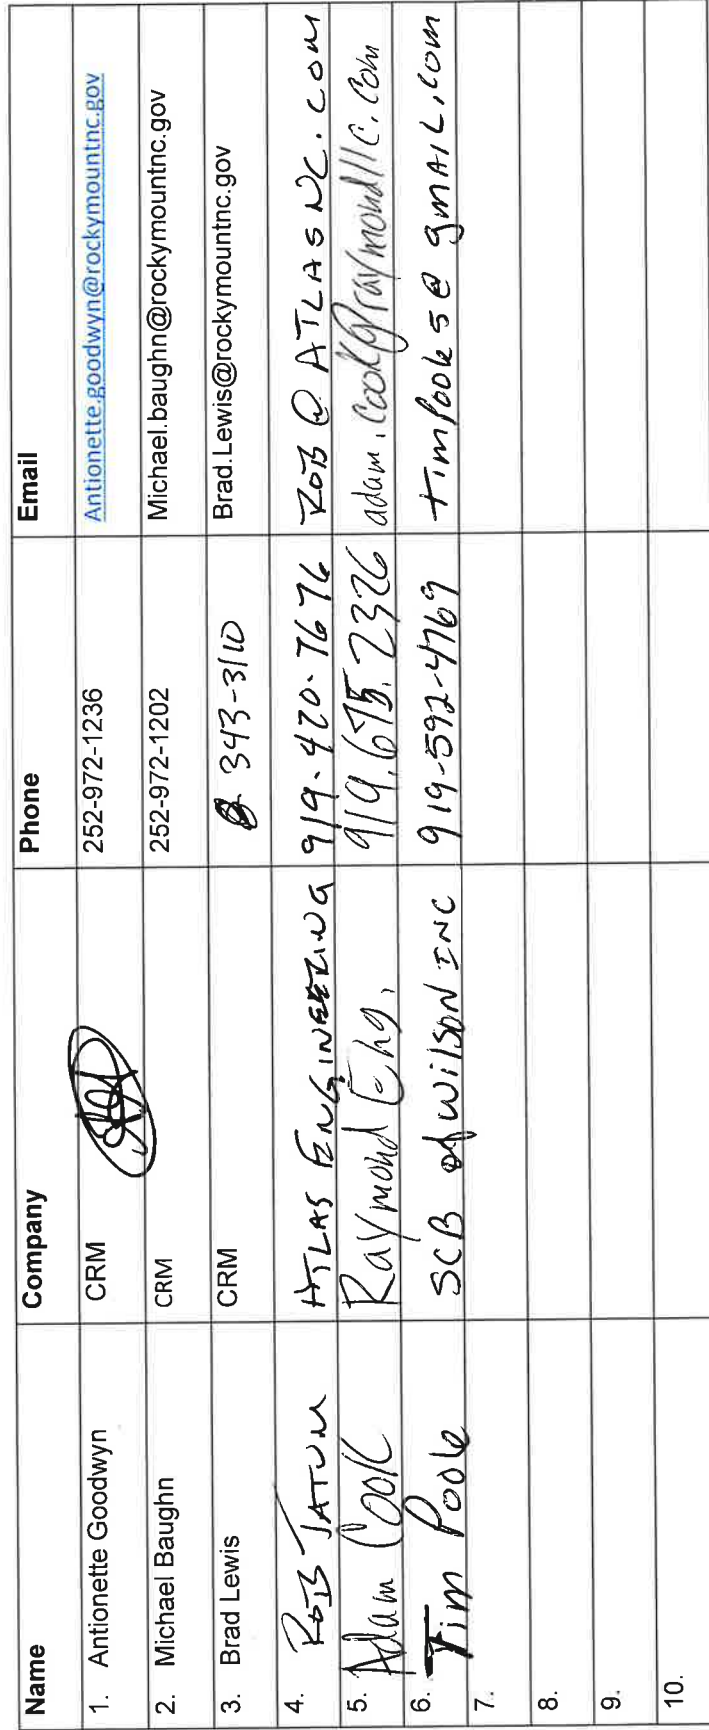 Name Company Phone Email
1. Antionette Goodwyn CRM 252-972-1236 Antionette.goodwyn@rockymountnc.gov
2. Michael Baughn CRM 252-972-1202 Michael.baughn@rockymountnc.gov
3. Brad Lewis CRM 343-3110 Brad.Lewis@rockymountnc.gov
4. ROB TATUM ATLAS ENGINEERING 919-420-7676 ROB@ATLASNC.COM
5. Adam Cook Raymond Eng. 919.675.2326 adam.cook@raymondllc.com
6. Tim Poole SCB of Wilson INC 919-592-4769 timpoole5@gmail.com
7.
8.
9.
10.